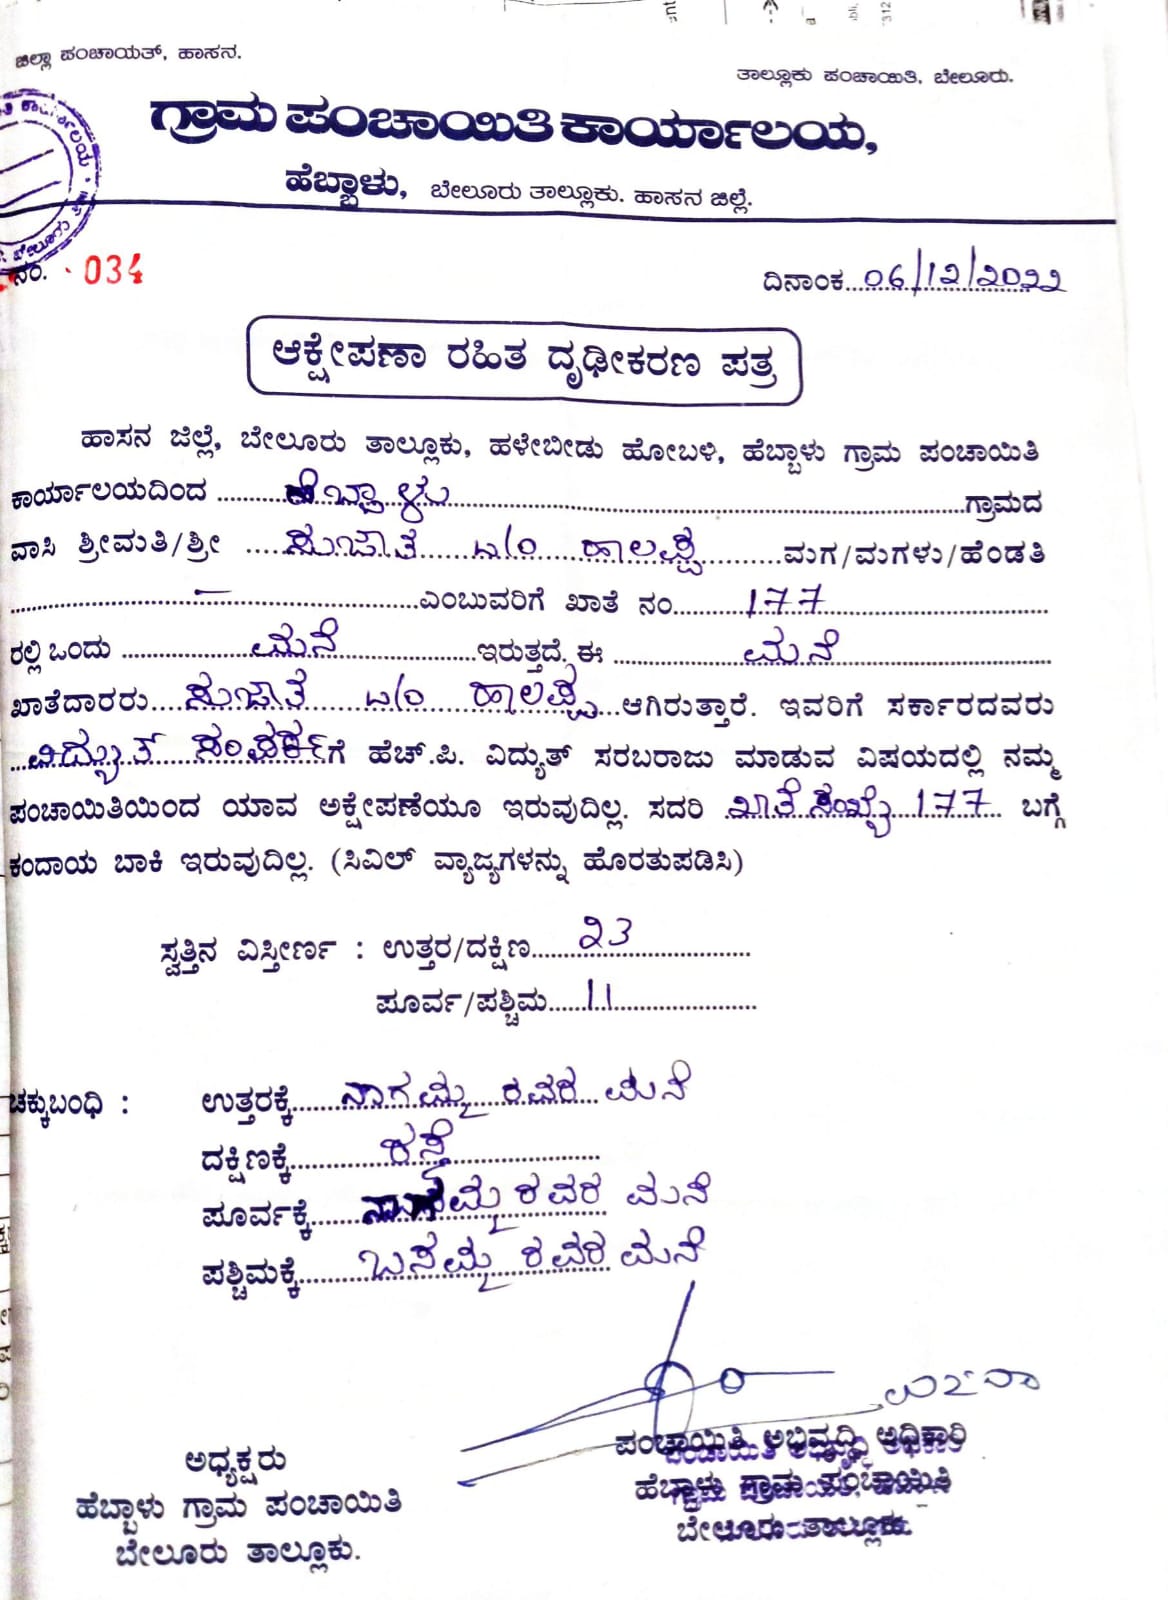 ಜಿಲ್ಲಾ ಪಂಚಾಯತ್, ಹಾಸನ.
ತಾಲ್ಲೂಕು ಪಂಚಾಯಿತಿ, ಬೇಲೂರು.
ಗ್ರಾಮ ಪಂಚಾಯಿತಿ ಕಾರ್ಯಾಲಯ,
ಹೆಬ್ಬಾಳು, ಬೇಲೂರು ತಾಲ್ಲೂಕು. ಹಾಸನ ಜಿಲ್ಲೆ.
ನಂ. 034
ದಿನಾಂಕ 06/12/2022
ಆಕ್ಷೇಪಣಾ ರಹಿತ ದೃಢೀಕರಣ ಪತ್ರ
ಹಾಸನ ಜಿಲ್ಲೆ, ಬೇಲೂರು ತಾಲ್ಲೂಕು, ಹಳೇಬೀಡು ಹೋಬಳಿ, ಹೆಬ್ಬಾಳು ಗ್ರಾಮ ಪಂಚಾಯಿತಿ
ಕಾರ್ಯಾಲಯದಿಂದ ಹೆಬ್ಬಾಳು ಗ್ರಾಮದ
ವಾಸಿ ಶ್ರೀಮತಿ/ಶ್ರೀ ಸುಜಾತ ಬಿ/ಂ ಹಾಲಪ್ಪ ಮಗ/ಮಗಳು/ಹೆಂಡತಿ
– ಎಂಬುವರಿಗೆ ಖಾತೆ ನಂ. 177
ರಲ್ಲಿ ಒಂದು ಮನೆ ಇರುತ್ತದೆ, ಈ ಮನೆ
ಖಾತೆದಾರರು ಸುಜಾತ ಬಿ/ಂ ಹಾಲಪ್ಪ ಆಗಿರುತ್ತಾರೆ. ಇವರಿಗೆ ಸರ್ಕಾರದವರು
ವಿದ್ಯುತ್ ಸಂಪರ್ಕಗೆ ಹೆಚ್.ಪಿ. ವಿದ್ಯುತ್ ಸರಬರಾಜು ಮಾಡುವ ವಿಷಯದಲ್ಲಿ ನಮ್ಮ
ಪಂಚಾಯಿತಿಯಿಂದ ಯಾವ ಅಕ್ಷೇಪಣೆಯೂ ಇರುವುದಿಲ್ಲ. ಸದರಿ ಖಾತೆ ಸಂಖ್ಯೆ 177 ಬಗ್ಗೆ
ಕಂದಾಯ ಬಾಕಿ ಇರುವುದಿಲ್ಲ. (ಸಿವಿಲ್ ವ್ಯಾಜ್ಯಗಳನ್ನು ಹೊರತುಪಡಿಸಿ)
ಸ್ವತ್ತಿನ ವಿಸ್ತೀರ್ಣ : ಉತ್ತರ/ದಕ್ಷಿಣ 23
ಪೂರ್ವ/ಪಶ್ಚಿಮ 11
ಚಕ್ಕುಬಂಧಿ : ಉತ್ತರಕ್ಕೆ ನಾಗಮ್ಮ ರವರ ಮನೆ
ದಕ್ಷಿಣಕ್ಕೆ ರಸ್ತೆ
ಪೂರ್ವಕ್ಕೆ ರವರ ಮನೆ
ಪಶ್ಚಿಮಕ್ಕೆ ಬಸಮ್ಮ ರವರ ಮನೆ
ಅಧ್ಯಕ್ಷರು
ಹೆಬ್ಬಾಳು ಗ್ರಾಮ ಪಂಚಾಯಿತಿ
ಬೇಲೂರು ತಾಲ್ಲೂಕು.
ಪಂಚಾಯಿತಿ ಅಭಿವೃದ್ಧಿ ಅಧಿಕಾರಿ
ಹೆಬ್ಬಾಳು ಗ್ರಾಮ ಪಂಚಾಯಿತಿ
ಬೇಲೂರು ತಾಲ್ಲೂಕು.